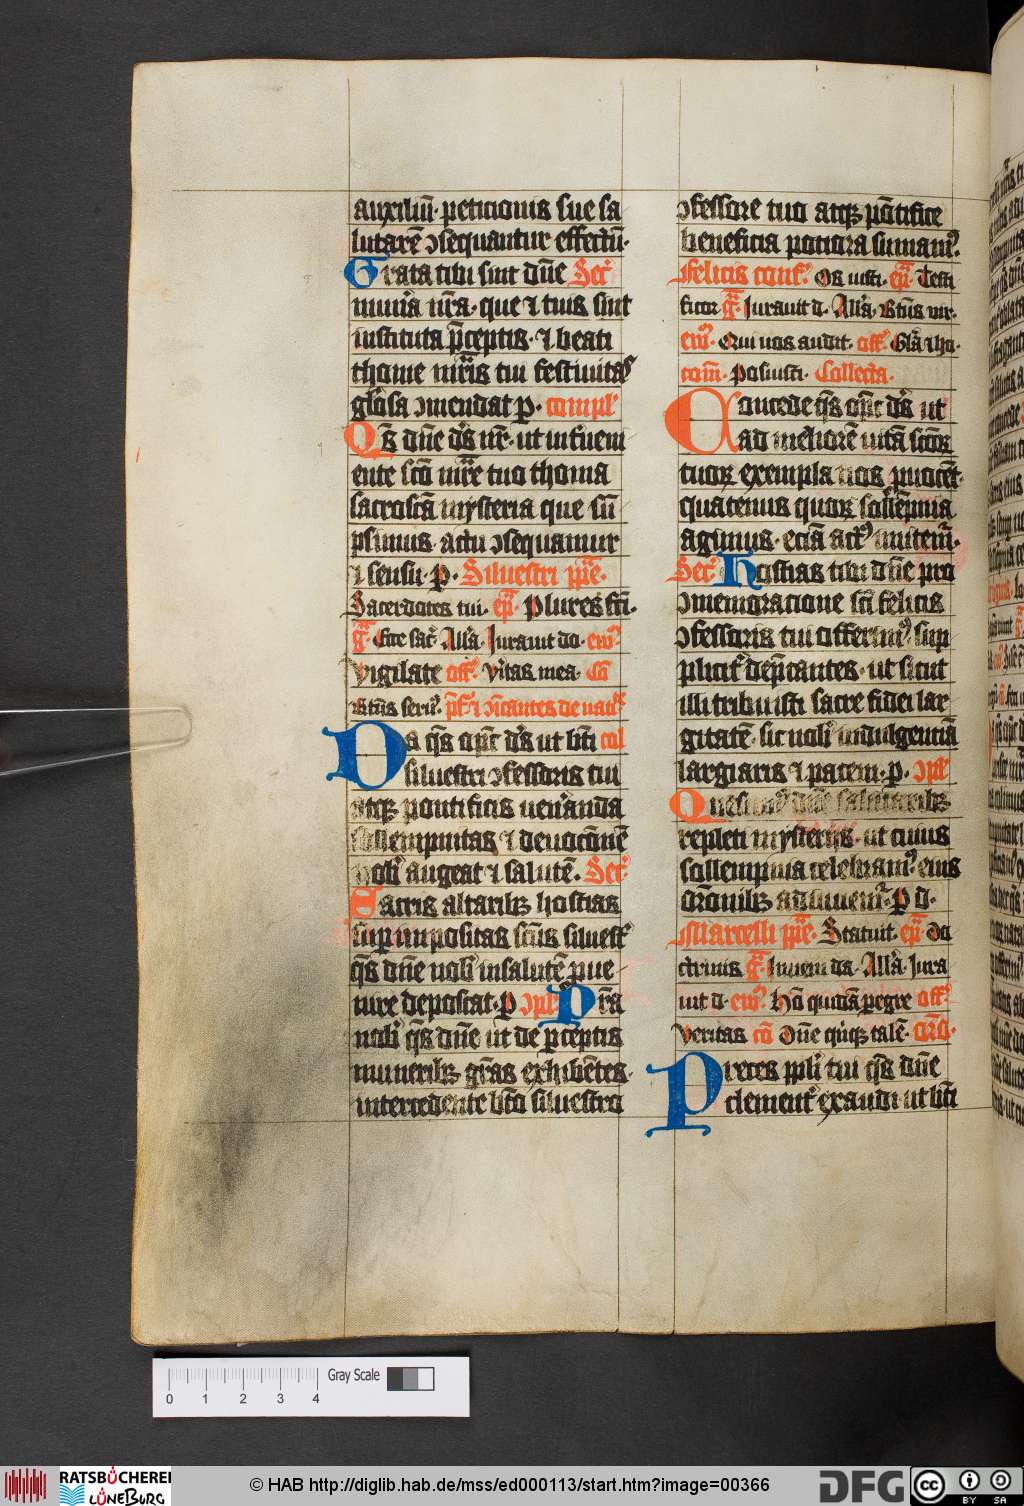 auxiliū· peticionis sue sa
lutarē ꝯsequantur effectū·
Grata tibi sint dn̄e Sec̄
mun̄a nr̄a· que ⁊ tuis sint
instituta p̄ceptis· ⁊ beati
thome mr̄is tui festiuitas
gl̄osa ꝯmendat p· compl'
Qs̄ dn̄e ds̄ nr̄· ut int̄ueni
ente sc̄o mr̄e tuo thoma
sacrosc̄a mysteria que sūi
psimus· actu ꝯsequamur
⁊ sensu· p· Siluestri pp̄e·
Sacerdotes tui· ep̄a· Plures fc̄i·
gr̄a· Ecce sac̄· Allā· Jurauit do· ew̄·
Vigilate off· Ueritas mea· Cō
Btūs seru'· pf̄· ⁊ ꝯīcantes de nat̄
Da qs̄ opc̄ ds̄ ut bt̄i col
siluestri ꝯfessoris tui
atqꝫ pontificis uen̄anda
sollempnitas ⁊ deuocōnē
nob̄ augeat ⁊ salutē· Sec̄
Sacris altaribꝫ hostias
sup̄impositas sc̄us siluest̄
qs̄ dn̄e nob̄ in salutē pue
nire deposcat· p ꝯpl' Pr̄a
nob̄ qs̄ dn̄e ut de p̄ceptis
muneribꝫ grās exhibētes·
intercedente bt̄o siluestro
ꝯfessore tuo atqꝫ pōtifice
beneficia potiora sumam'·
Felicis conf'· Os iusti· ep̄a· Testi
ficor gr̄a· Jurauit d· Allā· Btūs uir·
ew̄· Qui uos audit· off· Glā ⁊ ho·
com̄· Posuisti· Collecta·
Concede qs̄ opc̄ ds̄ ut
ad meliorē uitā sc̄oꝝ
tuoꝝ exempla nos puocēt·
quatenus quoꝝ sollēpnia
agimus· eciā act' imitem̄·
Sec̄ Hostias tibi dn̄e pro
ꝯmemoracione sc̄i felicis
ꝯfessoris tui offerim' sup
plicit̄ dep̄cantes· ut sicut
illi tribuisti sacre fidei lar
gitatē· sic nob̄ indulgenciā
largiaris ⁊ pacem· p· ꝯpl'
Quesum' dn̄e salutaribꝫ
repleti mysteriis· ut cuius
sollempnia celebram' eius
orōnibꝫ adiuuem̄· P d·
Marcelli pp̄e· Statuit· ep̄a· Do
ctrinis gr̄a· Inueni da· Allā· Jura
uit d· ew̄· Hō quidā pegre off·
Veritas cō Dn̄e qi̇nqꝫ talē· Orō·
Preces ppli tui qs̄ dn̄e
clement̄ exaudi ut bt̄i
0 1 2 3 4 Gray Scale
RATSBÜCHEREI LÜNEBURG
© HAB http://diglib.hab.de/mss/ed000113/start.htm?image=00366
DFG
cc BY SA